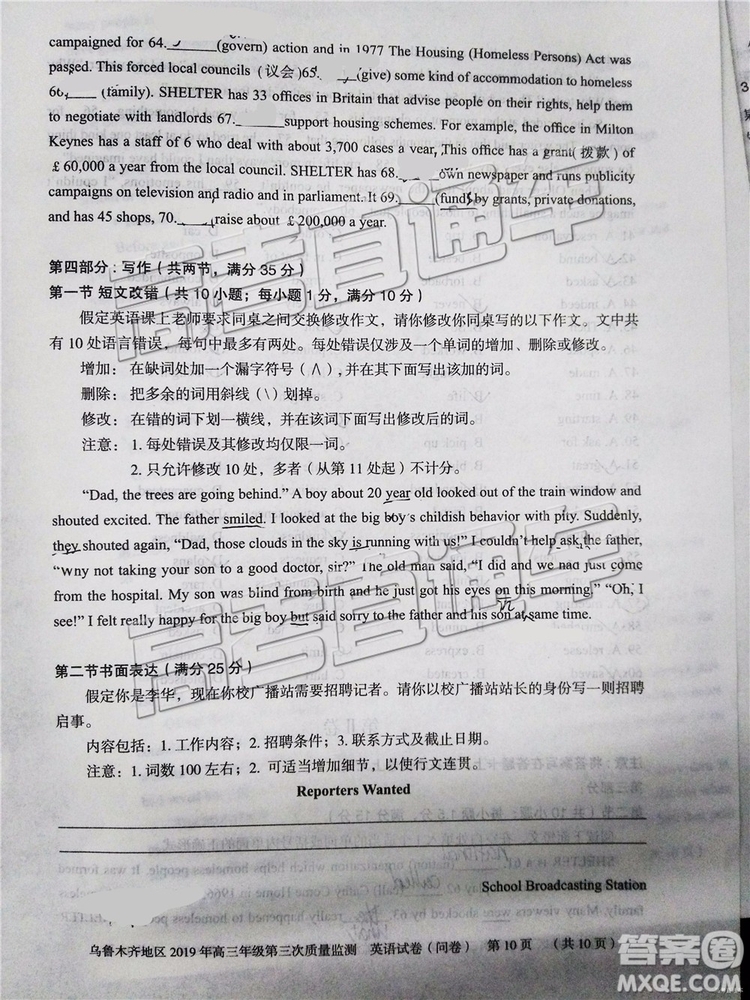 campaigned for 64.______(govern) action and in 1977 The Housing (Homeless Persons) Act was
passed. This forced local councils (议会)65.____(give) some kind of accommodation to homeless
66.____ (family). SHELTER has 33 offices in Britain that advise people on their rights, help them
to negotiate with landlords 67.______support housing schemes. For example, the office in Milton
Keynes has a staff of 6 who deal with about 3,700 cases a year, This office has a grant(拨款) of
£60,000 a year from the local council. SHELTER has 68.______own newspaper and runs publicity
campaigns on television and radio and in parliament. It 69.______(fund) by grants, private donations,
and has 45 shops, 70.____raise about £200,000 a year.
第四部分:写作(共两节,满分35分)
第一节 短文改错(共10小题;每小题1分,满分10分)
假定英语课上老师要求同桌之间交换修改作文,请你修改你同桌写的以下作文。文中共
有10处语言错误,每句中最多有两处。每处错误仅涉及一个单词的增加、删除或修改。
增加: 在缺词处加一个漏字符号(∧),并在其下面写出该加的词。
删除: 把多余的词用斜线(\)划掉。
修改: 在错的词下划一横线,并在该词下面写出修改后的词。
注意: 1. 每处错误及其修改均仅限一词。
2. 只允许修改10处,多者(从第11处起)不计分。
“Dad, the trees are going behind.” A boy about 20 year old looked out of the train window and
shouted excited. The father smiled. I looked at the big boy's childish behavior with pity. Suddenly,
they shouted again, “Dad, those clouds in the sky is running with us!” I couldn't help ask the father,
“Why not taking your son to a good doctor, sir?” The old man said, “I did and we had just come
from the hospital. My son was blind from birth and he just got his eyes on this morning.” “Oh, I
see!” I felt really happy for the big boy but said sorry to the father and his son at same time.
第二节书面表达(满分25分)
假定你是李华,现在你校广播站需要招聘记者。请你以校广播站站长的身份写一则招聘
启事。
内容包括:1. 工作内容;2. 招聘条件;3. 联系方式及截止日期。
注意:1. 词数100左右;2. 可适当增加细节,以使行文连贯。
Reporters Wanted
School Broadcasting Station
乌鲁木齐地区2019年高三年级第三次质量监测 英语试卷(问卷) 第10页 (共10页)
高考直通车
高考直通车
答案圈
MXQE.COM